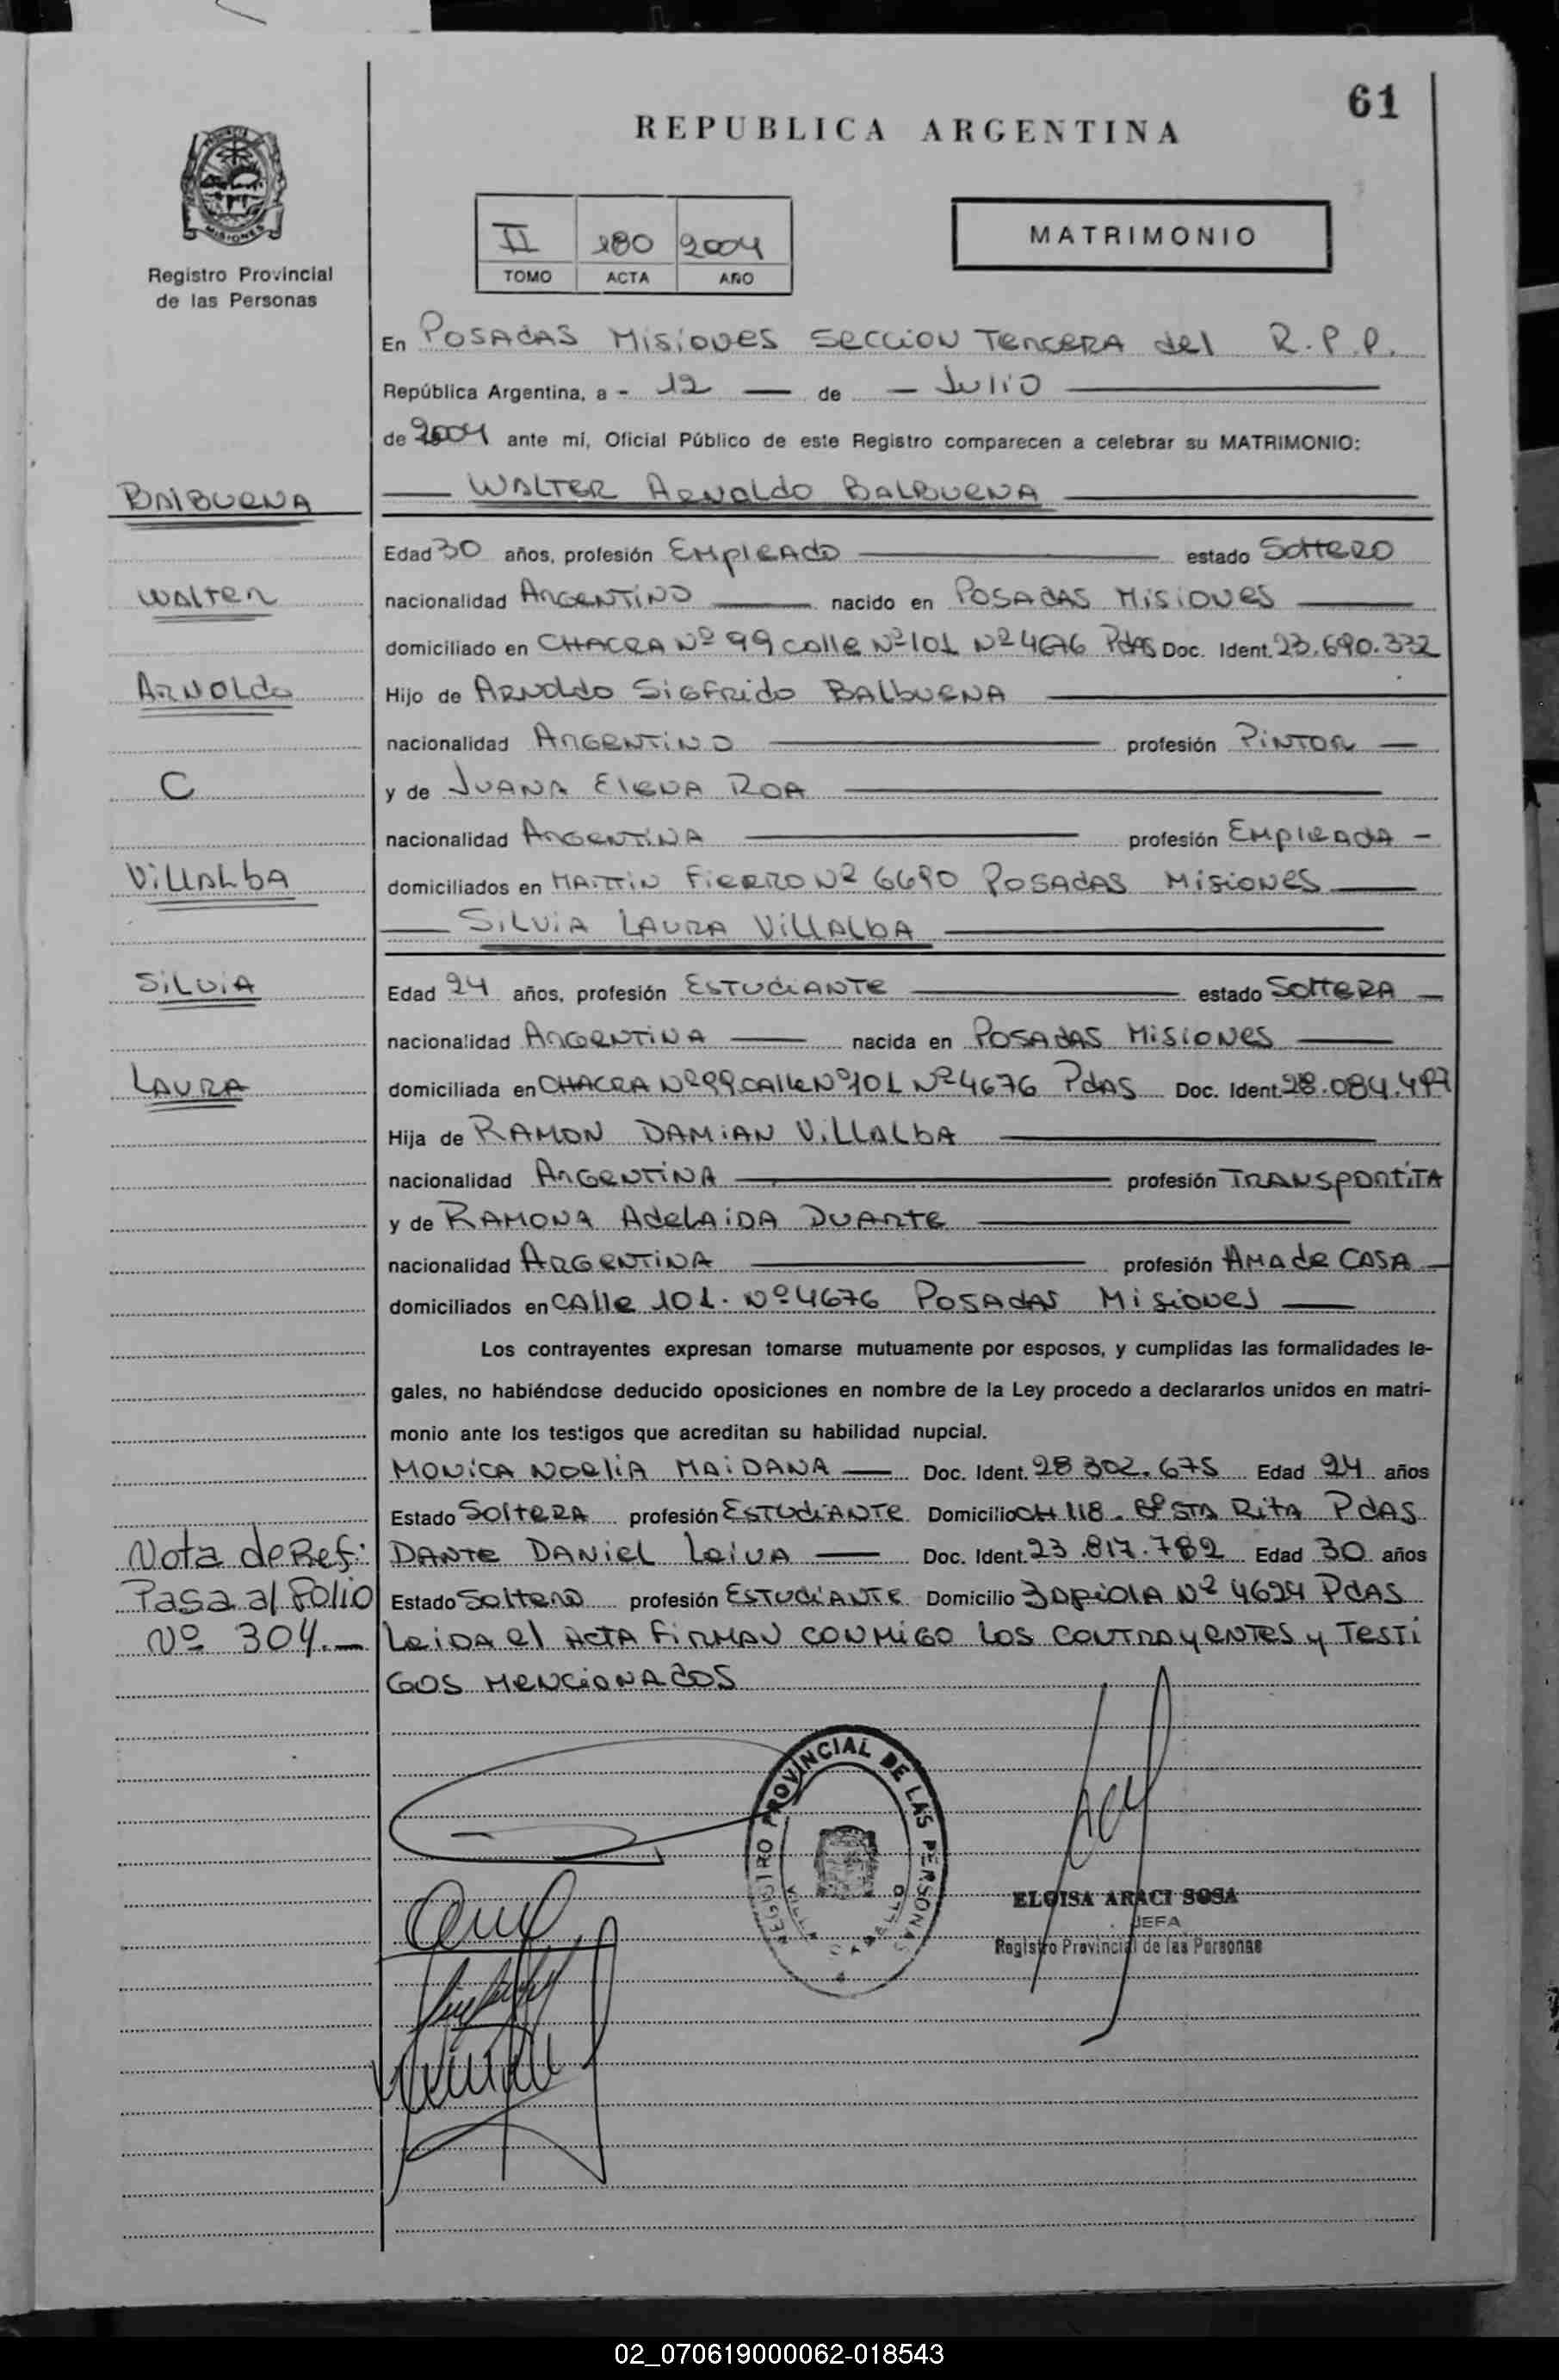 61
REPUBLICA ARGENTINA
MISIONES
Registro Provincial
de las Personas
II 180 2004
TOMO ACTA AÑO
MATRIMONIO
En POSADAS MISIONES SECCION TERCERA del R.P.P.
República Argentina, a - 12 — de — Julio
de 2004 ante mí, Oficial Público de este Registro comparecen a celebrar su MATRIMONIO:
BALBUENA
WALTER ARNOLDO BALBUENA
Edad 30 años, profesión EMPLEADO estado SOLTERO
WALTER
nacionalidad ARGENTINO nacido en POSADAS MISIONES
domiciliado en CHACRA Nº 99 calle Nº 101 Nº 4676 Pdas Doc. Ident. 23.690.332
ARNOLDO
Hijo de ARNOLDO SIGFRIDO BALBUENA
nacionalidad ARGENTINO profesión PINTOR —
C
y de JUANA ELENA ROA
nacionalidad ARGENTINA profesión EMPLEADA -
VILLALBA
domiciliados en MARTIN FIERRO Nº 6690 POSADAS MISIONES
SILVIA LAURA VILLALBA
SILVIA
Edad 24 años, profesión ESTUDIANTE estado SOLTERA —
nacionalidad ARGENTINA nacida en POSADAS MISIONES
LAURA
domiciliada en CHACRA Nº 99 CALLE Nº 101 Nº 4676 PdAS Doc. Ident. 28.084.497
Hija de RAMON DAMIAN VILLALBA
nacionalidad ARGENTINA profesión TRANSPORTITA
y de RAMONA ADELAIDA DUARTE
nacionalidad ARGENTINA profesión AMA de CASA
domiciliados en CALLE 101. Nº 4676 POSADAS MISIONES
Los contrayentes expresan tomarse mutuamente por esposos, y cumplidas las formalidades le-
gales, no habiéndose deducido oposiciones en nombre de la Ley procedo a declararlos unidos en matri-
monio ante los testigos que acreditan su habilidad nupcial.
MONICA NOELIA MAIDANA — Doc. Ident. 28 302.675 Edad 24 años
Estado SOLTERA profesión ESTUDIANTE Domicilio CH 118. Bº STA RITA PdAS
Nota de Ref:
DANTE DANIEL LEIVA — Doc. Ident. 23.817.782 Edad 30 años
Pasa al Folio
Estado SOLTERO profesión ESTUDIANTE Domicilio ZAPIOLA Nº 4624 PdAS
Nº 304.—
LEIDA el ACTA FIRMAN CONMIGO LOS CONTRAYENTES y TESTI
GOS MENCIONADOS
REGISTRO PROVINCIAL DE LAS PERSONAS
VILLA CABELLO
ELOISA ARACI SOSA
JEFA
Registro Provincial de las Personas
02_070619000062-018543